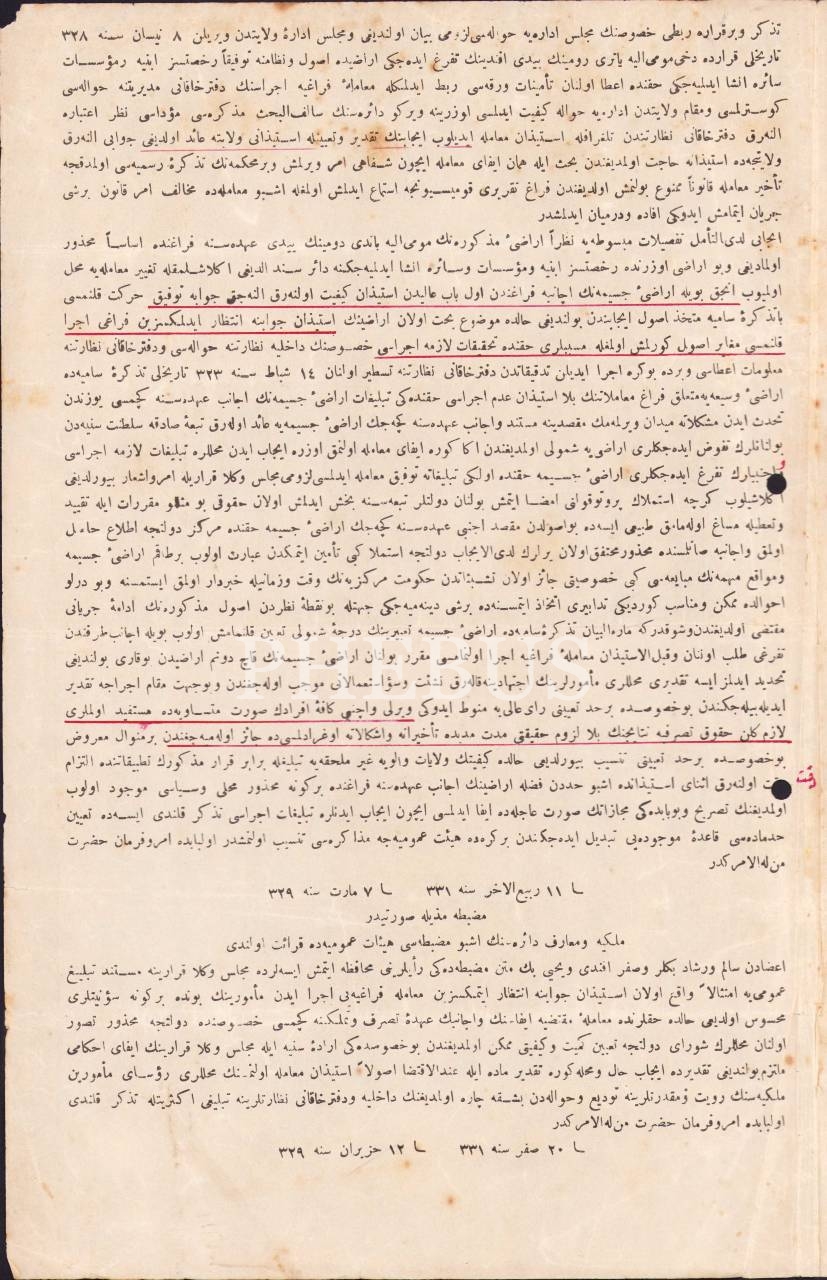 تذكر وبرقراره ربطى خصوصنك مجلس اداره‌يه حواله‌سى لزومى بيان اولنديغى ومجلس ادارۀ ولايتدن ويريلن ٨ نيسان سنه ٣٢٨
تاريخلى قرارده دخى مومى اليه ياترى رومينك بيدى افندينك تفرغ ايده‌جكى اراضيده اصول ونظامنه توفيقاً رخصتسز ابنيه ومؤسسات
سائره انشا ايدلميه‌جكى حقنده اعطا اولنان تأمينات ورقه‌سى ربط ايدلمكله معاملۀ فراغيه اجراسنك دفترخاقانى مديريتنه حواله‌سى
كوسترلمسى ومقام ولايتدن اداره‌يه حواله كيفيت ايدلمسى اوزرينه ويركو دائره‌سنك سالف‌البحث مذكره‌سى مؤداسى نظر اعتباره
النه‌رق دفترخاقانى نظارتندن تلغرافله استيذان معامله ايديلوب ايجابنك تقدير وتعيينله استيذانى ولايته عائد اولديغى جوابى النه‌رق
ولايتجه‌ده استيذانه حاجت اولمديغندن بحث ايله همان ايفاى معامله ايچون شفاهى امر ويرلمش وبرمحكمه‌نك تذكرۀ رسميه‌سى اولمدقجه
تأخير معامله قانوناً ممنوع بولنمش اولديغندن فراغ تقريرى قوميسيونجه استماع ايدلمش اولمغله اشبو معامله‌ده مخالف امر قانون برشى
جريان ايتمامش ايدوكى افاده ودرميان ايدلمشدر
ايجابى لدى‌التأمل تفصيلات مبسوطه‌يه نظراً اراضئ مذكوره‌نك مومى اليه باندى دومينك بيدى عهده‌سنه فراغنده اساساً محذور
اولماديغى وبو اراضى اوزرنده رخصتسز ابنيه ومؤسسات وسائره انشا ايدلميه‌جكنه دائر سند الديغى اكلاشلمقله تغيير معامله‌يه محل
اولميوب انجق بويله اراضئ جسيمه‌نك اجانبه فراغندن اول باب عاليدن استيذان كيفيت اولنه‌رق النه‌جق جوابه توفيق حركت قلنمسى
باتذكرۀ ساميه متخذ اصول ايجابندن بولنديغى حالده موضوع بحث اولان اراضينك استيذان جوابنه انتظار ايدلمكسزين فراغى اجرا
قلنمسى مغاير اصول كورلمش اولمغله مسببلرى حقنده تحقيقات لازمه اجراسى خصوصنك داخليه نظارتنه حواله‌سى ودفترخاقانى نظارتنه
معلومات اعطاسى وبرده بوكره اجرا ايديلن تدقيقاتدن دفترخاقانى نظارتنه تسطير اولنان ١٤ شباط سنه ٣٢٣ تاريخلى تذكرۀ ساميه‌ده
اراضئ وسيعه‌يه متعلق فراغ معاملاتنك بلا استيذان عدم اجراسى حقنده‌كى تبليغات اراضئ جسيمه‌نك اجانب عهده‌سنه كچمسى يوزندن
تحدث ايدن مشكلاته ميدان ويرلمه‌مك مقصدينه مستند واجانب عهده‌سنه كچه‌جك اراضئ جسيمه‌يه عائد اوله‌رق تبعۀ صادقه سلطنت سنيه‌دن
بولنانلرك تفوض ايده‌جكلرى اراضى‌يه شمولى اولمديغندن اكا كوره ايفاى معامله اولنمق اوزره ايجاب ايدن محللره تبليغات لازمه اجراسى
تفرغ ايده‌جكلرى اراضئ جسيمه حقنده اولكى تبليغاته توفيق معامله ايدلمسى لزومى مجلس وكلا قراريله امرواشعار بيورلديغى
اكلاشيلوب كرچه استملاك پروتوقولنى امضا ايتمش بولنان دولتلر تبعه‌سنه بخش ايدلمش اولان حقوقى بو مثللو مقررات ايله تقييد
وتعطيله مساغ اوله‌مامق طبيعى ايسه‌ده بواصولدن مقصد اجنبى عهده‌سنه كچه‌جك اراضئ جسيمه حقنده مركز دولتجه اطلاع حاصل
اولمق واجانبه صاتلمسنده محذور محقق اولان يرلرك لدى‌الايجاب دولتجه استملاكى كبى تأمين ايتمكدن عبارت اولوب برطاقم اراضئ جسيمه
ومواقع مهمه‌نك مبايعه‌سى كبى خصوصيتى جائز اولان تشبثاتدن حكومت مركزيه‌نك وقت وزمانيله خبردار اولمق ايستمسنه وبو درلو
احوالده ممكن ومناسب كورديكى تدابيرى اتخاذ ايتمسنه‌ده برشى دينه‌ميه‌جكى جهتله بونقطۀ نظردن اصول مذكوره‌نك ادامۀ جريانى
مقتضى اولديغندن وشوقدركه مارالبيان تذكرۀ ساميه‌ده اراضئ جسيمه تعبيرينك درجۀ شمولى تعيين قلنمامش اولوب بويله اجانب طرفندن
تفرغى طلب اولنان وقبل‌الاستيذان معاملۀ فراغيه اجرا اولنمامسى مقرر بولنان اراضئ جسيمه‌نك قاچ دونم اراضيدن يوقارى بولنديغى
تحديد ايدلمز ايسه تقديرى محللرى مأمورلرينك اجتهادينه قاله‌رق تشتت وسؤاستعمالاتى موجب اوله‌جغندن وبوجهت مقام اجراجه تقدير
ايديله‌بيله‌جكندن بوخصوصده برحد تعيينى رأى عالى‌يه منوط ايدوكى ويرلى واجنبى كافۀ افرادك صورت متساويه‌ده مستفيد اولملرى
لازم كلن حقوق تصرفيه نتايجنك بلا لزوم حقيقتى مدت مديده تأخيراته واشكالاته اوغرادلمسى‌ده جائز اوله‌ميه‌جغندن برمنوال معروض
بوخصوصده برحد تعيينى تنسيب بيورلديغى حالده كيفيتك ولايات والويه غير ملحقه‌يه تبليغله برابر قرار مذكورك تطبيقاتنده التزام
دقت
دقت اولنه‌رق اثناى استيذانده اشبو حددن فضله اراضينك اجانب عهده‌سنه فراغنده بركونه محذور محلى وسياسى موجود اولوب
اولمديغنك تصريح وبوبابده‌كى مجازاتك صورت عاجله‌ده ايفا ايدلمسى ايچون ايجاب ايدنلره تبليغات اجراسى تذكر قلندى ايسه‌ده تعيين
حدماده‌سى قاعدۀ موجوده‌يى تبديل ايده‌جكندن بركره‌ده هيئت عموميه‌جه مذاكره‌سى تنسيب اولنمشدر اولبابده امروفرمان حضرت
من له الامركدر
١١ ربيع‌الاخر سنه ٣٣١ ٧ مارت سنه ٣٢٩
مضبطه مذيله صورتيدر
ملكيه ومعارف دائره‌سنك اشبو مضبطه‌سى هيئات عموميه‌ده قرائت اولندى
اعضادن سالم ورشاد بكلر وصفر افندى ويحيى بك متن مضبطه‌ده‌كى رأيلرينى محافظه ايتمش ايسه‌لرده مجلس وكلا قرارينه مستند تبليغ
عمومى‌يه امتثالاً واقع اولان استيذان جوابنه انتظار ايتمكسزين معامله فراغيه‌يى اجرا ايدن مأمورينك بونده بركونه سؤنيتلرى
محسوس اولديغى حالده حقلرنده معاملۀ مقتضيه ايفاسنك واجانبك عهدۀ تصرف وتملكنه كچمسى خصوصنده دولتجه محذور تصور
اولنان محللرك شوراى دولتجه تعيين كميت وكيفيتى ممكن اولمديغندن بوخصوصده‌كى ارادۀ سنيه ايله مجلس وكلا قرارينك ايفاى احكامى
ملتزم بولنديغى تقديرده ايجاب حال ومحله كوره تقدير ماده ايله عندالاقتضا اصولاً استيذان معامله اولنمسنك محللرى رؤساى مأمورين
ملكيه‌سنك رويت ومقدرتلرينه توديع وحواله‌دن بشقه چاره اولمديغنك داخليه ودفترخاقانى نظارتلرينه تبليغى اكثريتله تذكر قلندى
اولبابده امروفرمان حضرت من له الامركدر
٢٠ صفر سنه ٣٣١ ١٢ حزيران سنه ٣٢٩